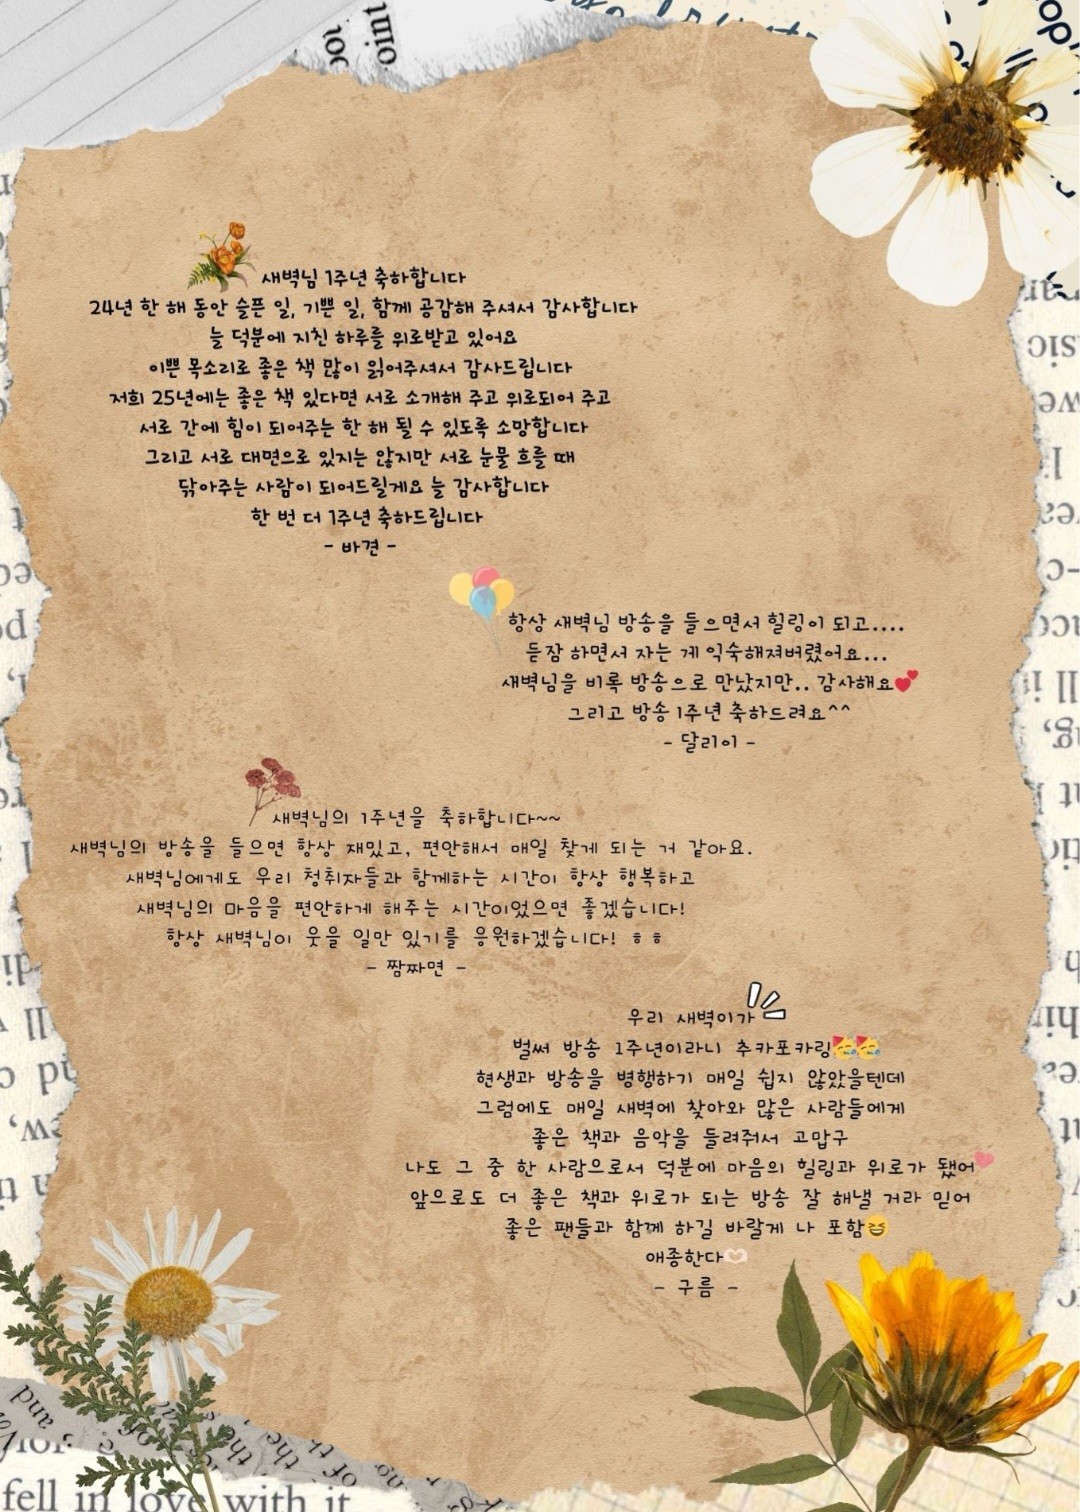 새벽님 1주년 축하합니다
24년 한 해 동안 슬픈 일, 기쁜 일, 함께 공감해 주셔서 감사합니다
늘 덕분에 지친 하루를 위로받고 있어요
이쁜 목소리로 좋은 책 많이 읽어주셔서 감사드립니다
저희 25년에는 좋은 책 있다면 서로 소개해 주고 위로되어 주고
서로 간에 힘이 되어주는 한 해 될 수 있도록 소망합니다
그리고 서로 대면으로 있지는 않지만 서로 눈물 흐를 때
닦아주는 사람이 되어드릴게요 늘 감사합니다
한 번 더 1주년 축하드립니다
- 바견 -
항상 새벽님 방송을 들으면서 힐링이 되고....
듣잠 하면서 자는 게 익숙해져버렸어요...
새벽님을 비록 방송으로 만났지만.. 감사해요💕
그리고 방송 1주년 축하드려요^^
- 달리이 -
새벽님의 1주년을 축하합니다~~
새벽님의 방송을 들으면 항상 재밌고, 편안해서 매일 찾게 되는 거 같아요.
새벽님에게도 우리 청취자들과 함께하는 시간이 항상 행복하고
새벽님의 마음을 편안하게 해주는 시간이었으면 좋겠습니다!
항상 새벽님이 웃을 일만 있기를 응원하겠습니다! ㅎㅎ
- 짬짜면 -
우리 새벽이가
벌써 방송 1주년이라니 추카포카링🥳🥳
현생과 방송을 병행하기 매일 쉽지 않았을텐데
그럼에도 매일 새벽에 찾아와 많은 사람들에게
좋은 책과 음악을 들려줘서 고맙구
나도 그 중 한 사람으로서 덕분에 마음의 힐링과 위로가 됐어
앞으로도 더 좋은 책과 위로가 되는 방송 잘 해낼 거라 믿어
좋은 팬들과 함께 하길 바랄게 나 포함😆
애종한다🫶🏻
- 구름 -
fell in love with it